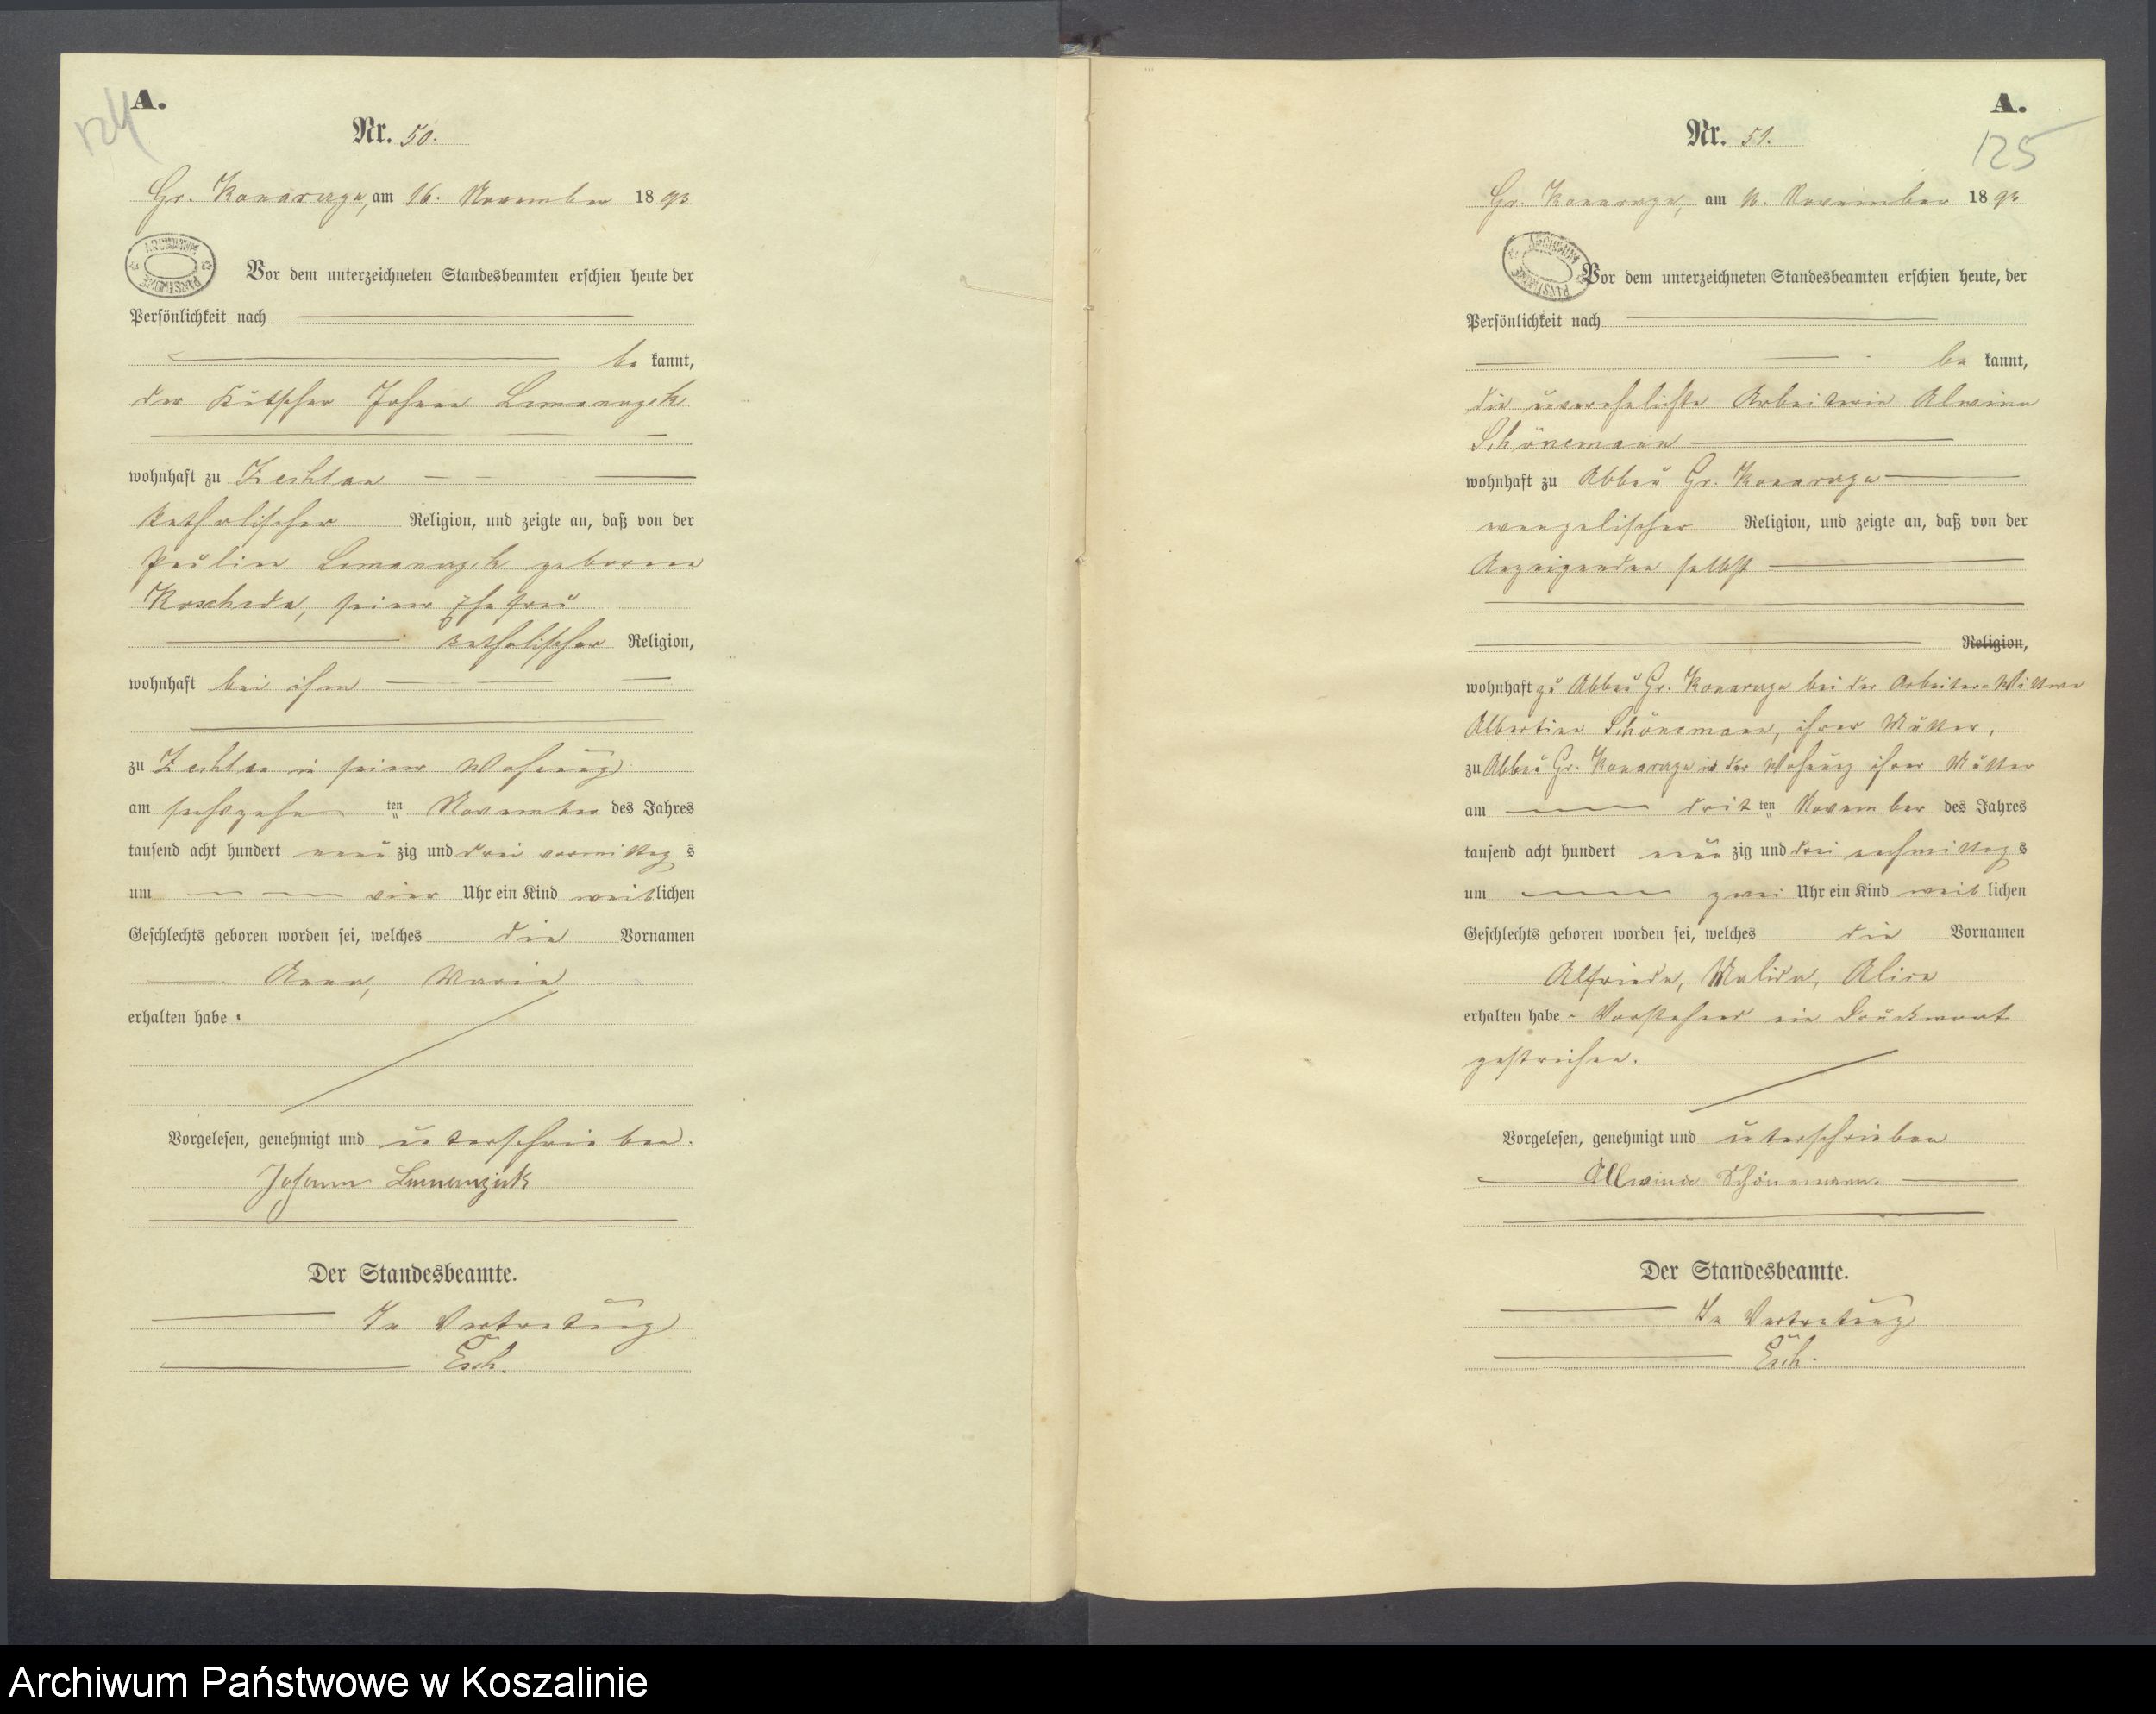 124
A.
Nr. 50.
Gr. Konarczyn, am 16. November 1893
ARCHIWUM PAŃSTWOWE
Vor dem unterzeichneten Standesbeamten erschien heute der
Persönlichkeit nach
be kannt,
der Kutscher Johann
wohnhaft zu Zechlau
katholischer Religion, und zeigte an, daß von der
geborene
seiner Ehefrau
katholischer Religion,
wohnhaft bei ihm
zu Zechlau in seiner Wohnung
am sechszehn ten November des Jahres
tausend acht hundert neun zig und drei vormittag s
um vier Uhr ein Kind weiblichen
Geschlechts geboren worden sei, welches die Vornamen
Anna, Maria
erhalten habe.
Vorgelesen, genehmigt und unterschrieben.
Johann
Der Standesbeamte.
In Vertretung
Esch.
A.
125
Nr. 51.
Gr. Konarczyn, am November 1893
ARCHIWUM PAŃSTWOWE
Vor dem unterzeichneten Standesbeamten erschien heute, der
Persönlichkeit nach
be kannt,
die unverehelichte Arbeiterin Alwine
Schönemann
wohnhaft zu Abbau Gr. Konarczyn
evangelischer Religion, und zeigte an, daß von der
Anzeigenden selbst
Religion,
wohnhaft zu Abbau Gr. Konarczyn bei der Arbeiter-Wittwe
Albertine Schönemann, ihrer Mutter,
zu Abbau Gr. Konarczyn in der Wohnung ihrer Mutter
am drit ten November des Jahres
tausend acht hundert neun zig und drei nachmittag s
um zwei Uhr ein Kind weib lichen
Geschlechts geboren worden sei, welches die Vornamen
Alfriede, Malida, Alice
erhalten habe - Vorstehend ein Druckwort
gestrichen.
Vorgelesen, genehmigt und unterschrieben
Allwine Schönemann.
Der Standesbeamte.
In Vertretung
Esch.
Archiwum Państwowe w Koszalinie